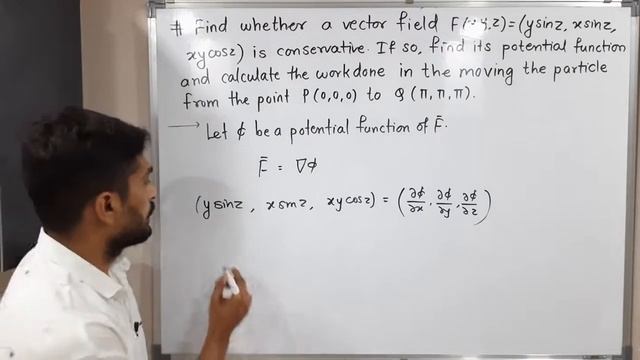 # Find whether a vector field F( y,z)=(ysinz, xsinz,
xycosz) is conservative. If so, find its potential function
and calculate the workdone in the moving the particle
from the point P(0,0,0) to Q(π,π,π).
→ Let ϕ be a potential function of F̄.
F̄ = ∇ϕ
(ysinz, xsinz, xycosz) = (∂ϕ/∂x, ∂ϕ/∂y, ∂ϕ/∂z)